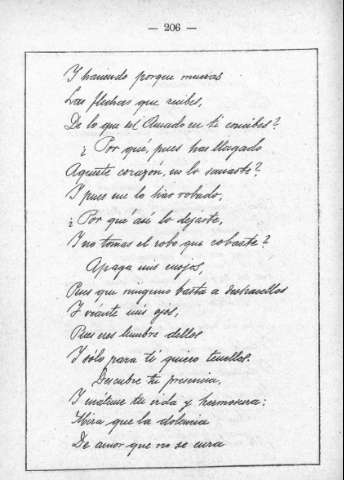 — 206 —
Y haciendo porque mueras
Las flechas que recibes,
De lo que del Amado en ti concibes?
¿Por qué, pues has llagado
Aqueste corazón, no lo sanaste?
Y pues me lo has robado,
¿Por qué así lo dejaste,
Y no tomas el robo que robaste?
Apaga mis enojos,
Pues que ninguno basta a deshacellos
Y véante mis ojos,
Pues eres lumbre dellos
Y sólo para ti quiero tenellos.
Descubre tu presencia,
Y máteme tu vida y hermosura:
Mira que la dolencia
De amor que no se cura